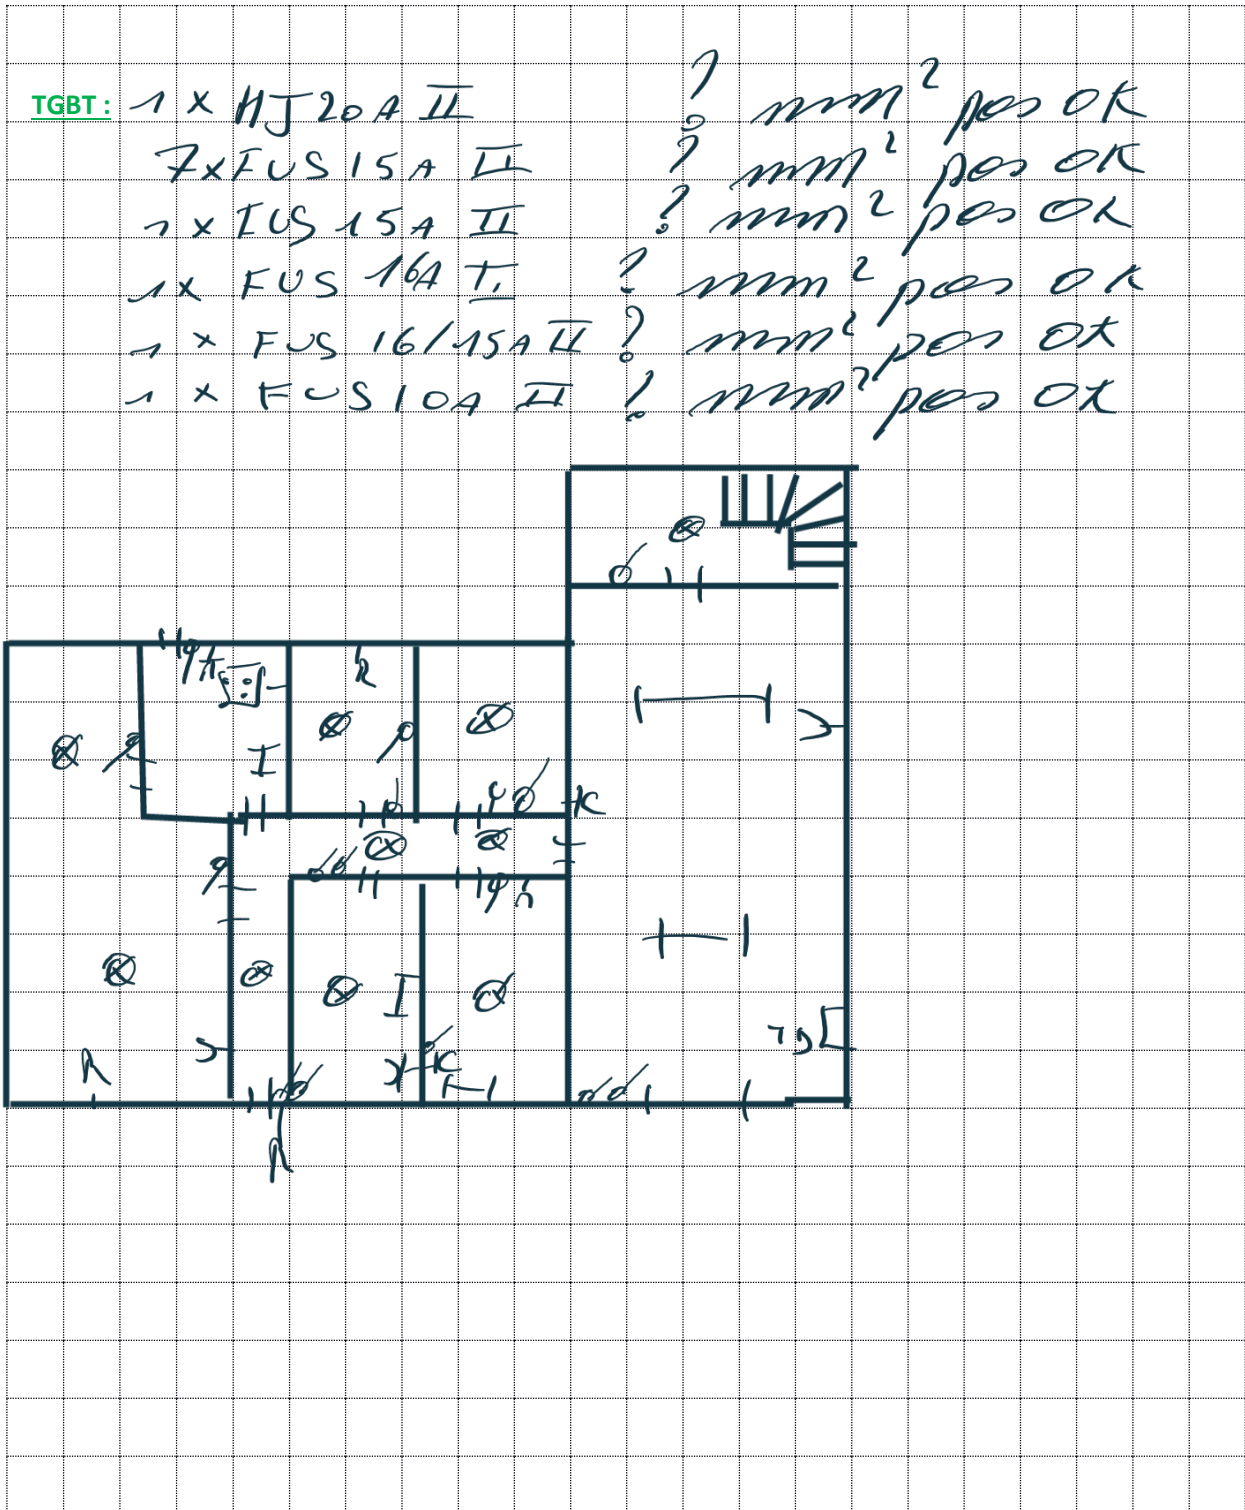 TGBT : 1 x AJ 20A II ? mm² pas OK
7 x FUS 15A II ? mm² pas OK
1 x IUS 15A II ? mm² pas OK
1 x FUS 16A II ? mm² pas OK
1 x FUS 16/15A II ? mm² pas OK
1 x FUS 10A II ? mm² pas OK